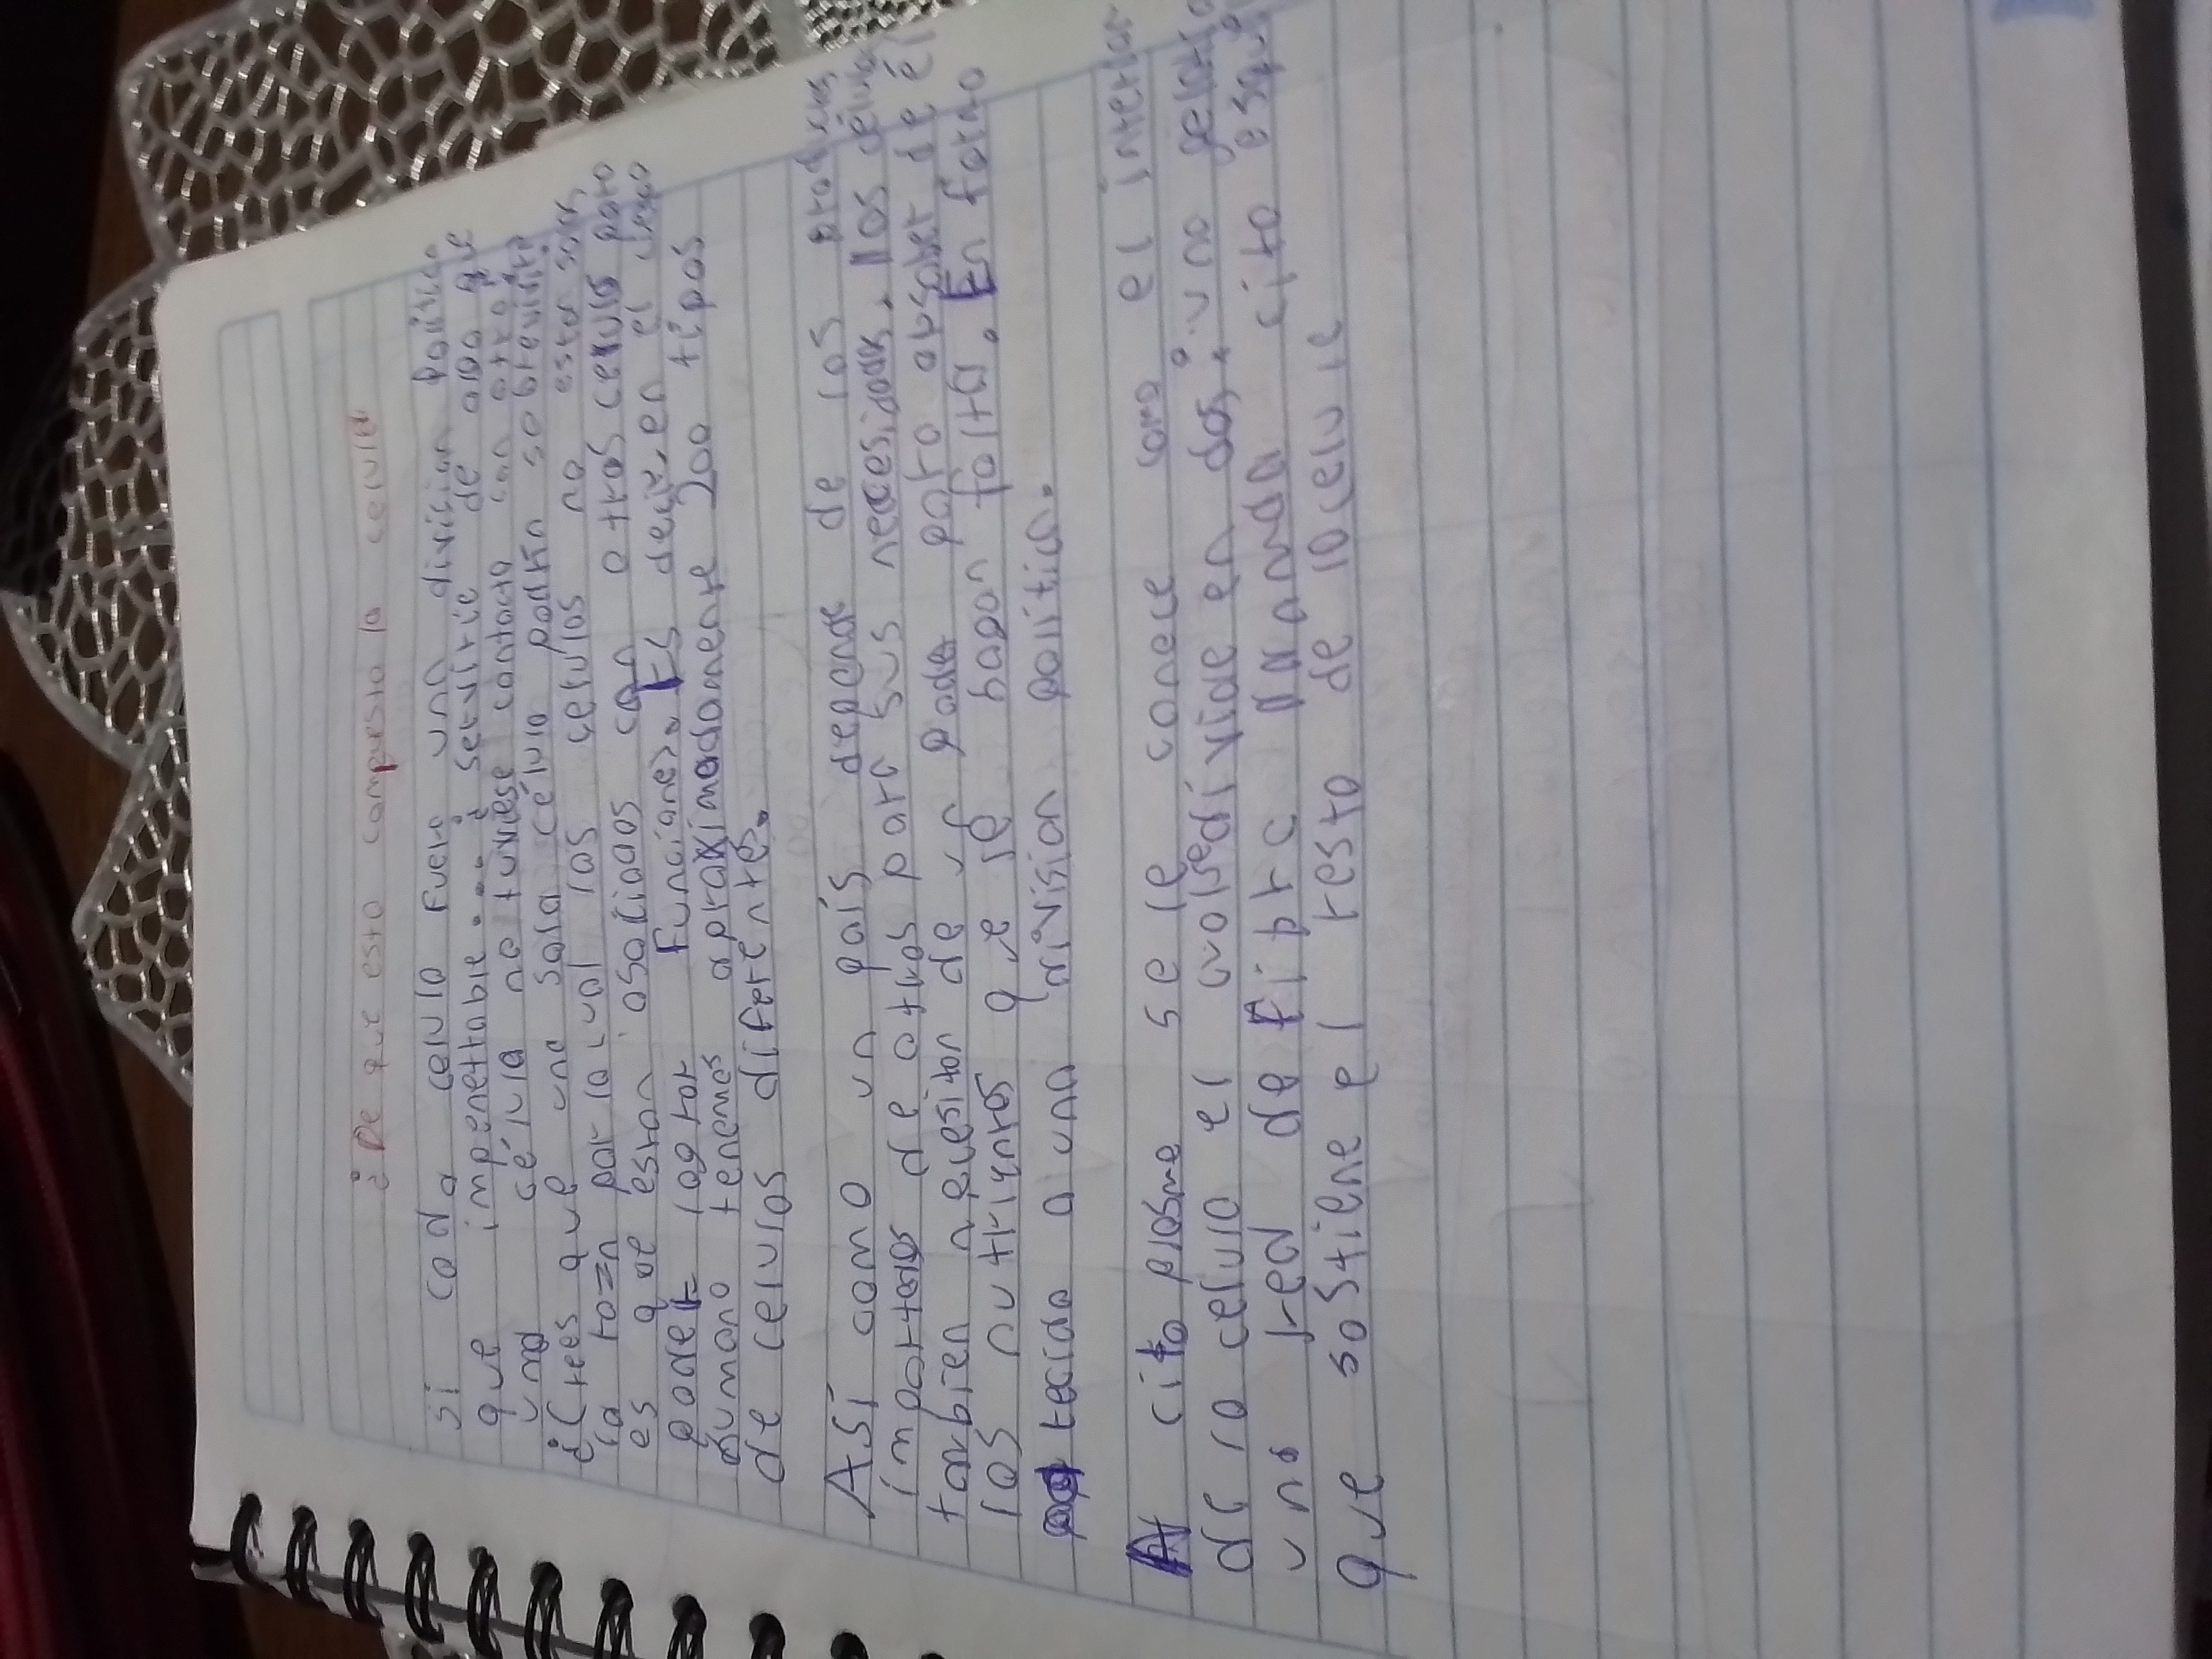 ¿De que esta compuesta la celula
Si cada celula fuera una division politica
que impenetrable... ¿ serviria de algo que
una célula no tuviese contacto con otra?
¿Crees que una sola célula podria sobrevivir?
la razn por la cual las celulas no estan solas
es que estan asociadas con otras celulas para
poder lograr Funciones. Es decir, en el cuerpo
humano tenemos aproximadamente 200 tipos
de celulas diferentes.
Así como un país depende de los productos
importados de otros para sus necesidades, las células
tanbien nesesitan de un poder para absorber de él
los nutrientes que se hagan falta. En forma
tecida a una division politica.
Al citoplasma se le conoce como el interior
de la celula el cual se divide en dos: una
una red de fibrc llamada cito
que sostiene el resto de la celula